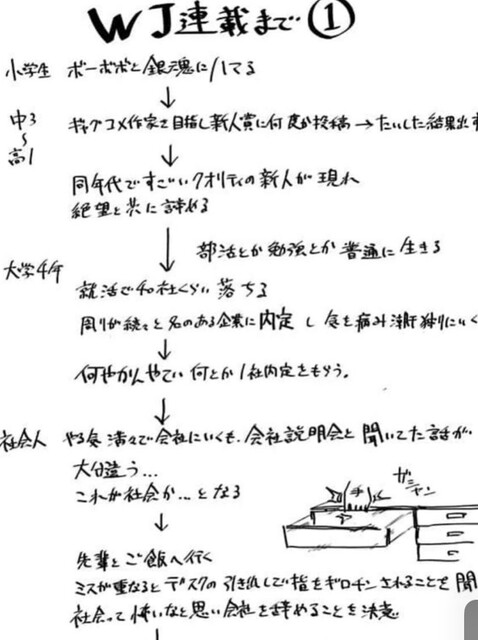 WJ連載まで①
小学生 ボーボボと銀魂にハマる
中3〜高1 ギャグコメ作家を目指し新人賞に何度か投稿→たいした結果出ず
同年代ですごいクオリティの新人が現れ
絶望と共に諦める
部活とか勉強とか普通に生きる
大学4年
就活で和社くらい落ちる
周りが続々と名のある企業に内定し
何やかんやで 何とか1社内定をもらう。
社会人 やる気満々で会社にいくも、会社説明会と聞いてた話が
大分違う…
これが社会か…となる
ガシャン
先輩とご飯へ行く
ミスが重なるとデスクの引き出しで指をギロチンされることを聞
社会って怖いなと思い会社を辞めることを決意